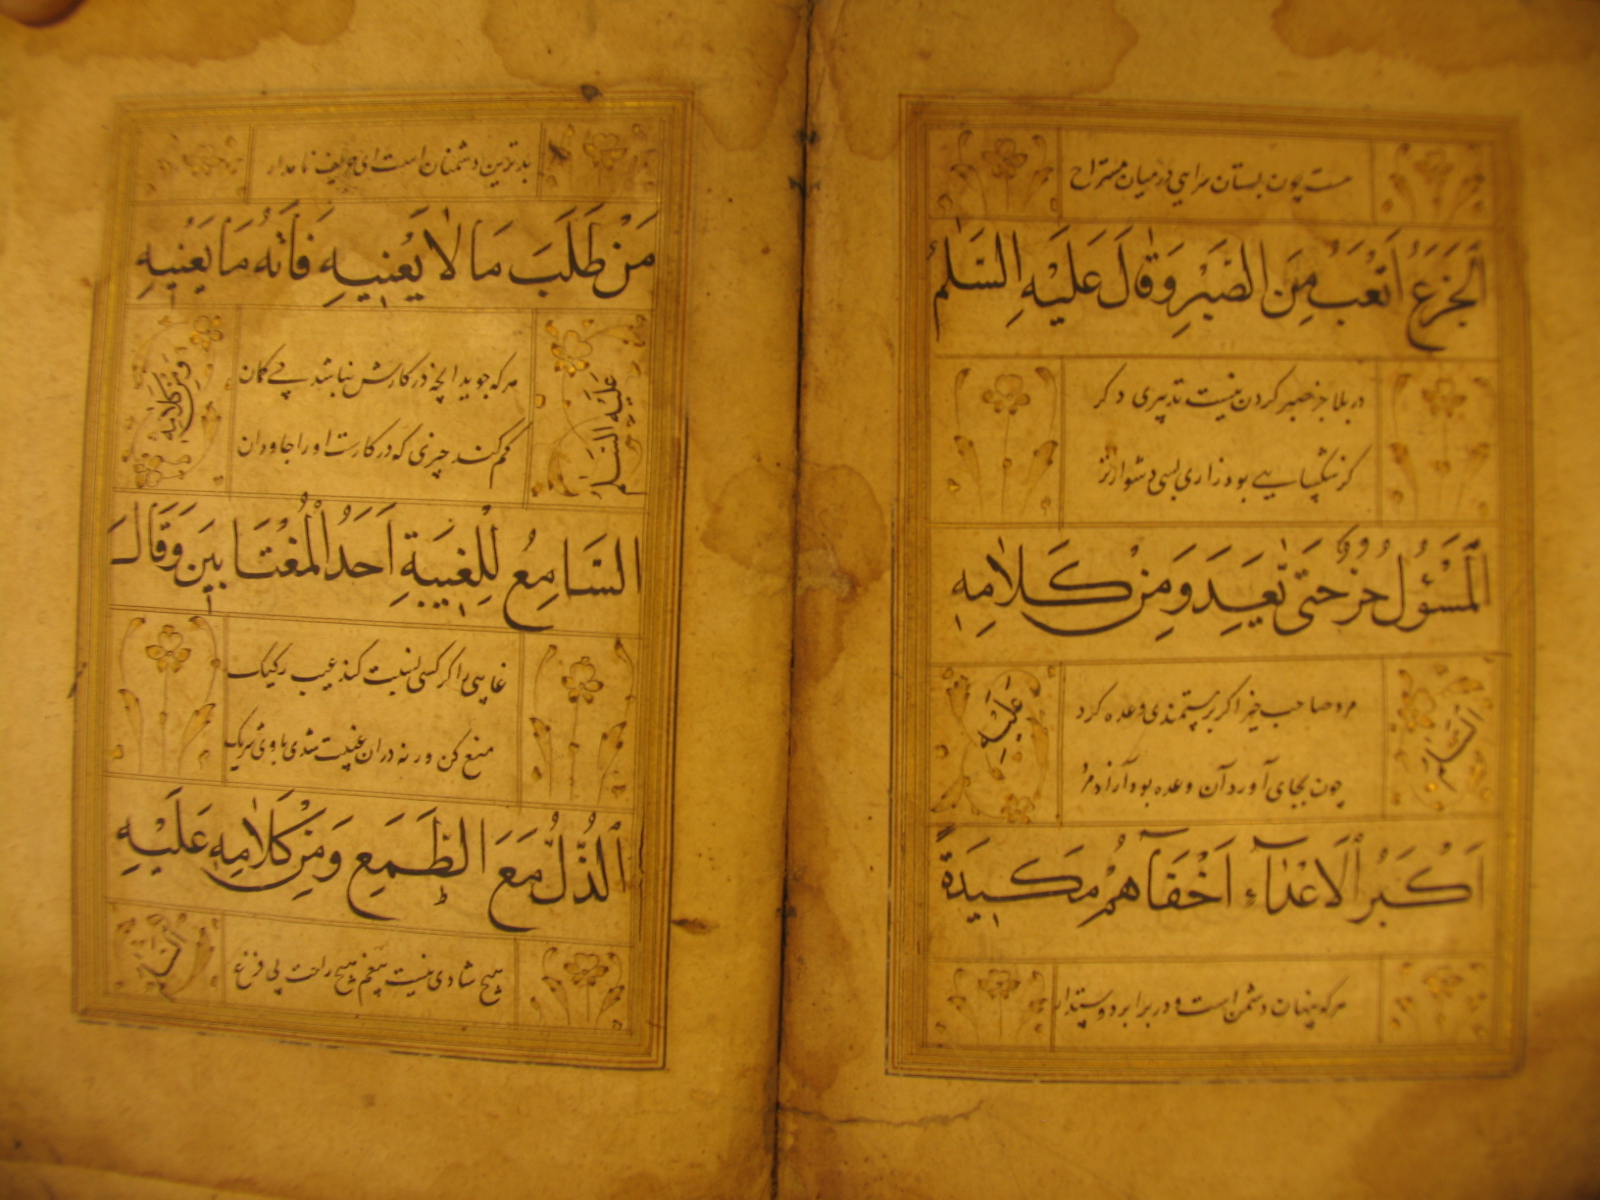 هست چون بستان سرایی در میان مستراح
اَلْجَزَعُ اَتْعَبُ مِنَ الصَّبْرِ وَقَالَ عَلَيْهِ السَّلٰمُ
در بلا جز صبر کردن نیست تدبیری دگر
کز شکیبایی بود زاری بسی دشوارتر
اَلْمَسْئُولُ حُرٌّ حَتّٰى يَعِدَ وَمِنْ كَلَامِهِ
عَلَيْهِ السَّلام
مرد صاحب خیر اکر بر مستمندی وعده کرد
چون بجای آورد آن وعده بود آزاد مرد
اَكْبَرُ الْاَعْدَآءِ اَخْفَآهُمْ مَكِيدَةً
هرکه پنهان دشمن است و در برابر دوستدار
بدترین دشمنان است ای حریف نامدار
مَنْ طَلَبَ مَا لَا يَعْنِيهِ فَاتَهُ مَا يَعْنِيهِ
وَمِنْ كَلَامِهِ عَلَيْهِ السَّلام
هرکه جوید انچه در کارش نباشد بی کمان
کم کند چیزی که در کارست او را جاودان
السَّامِعُ لِلْغِيبَةِ اَحَدُ الْمُغْتَابِينَ وَقَالَ
غایبی را کر کسی نسبت کند عیب رکیک
منع کن ورنه در ان غیبت شدی با وی شریک
اَلذُّلُّ مَعَ الطَّمَعِ وَمِنْ كَلَامِهِ عَلَيْهِ
السَّلام
هیچ شادی نیست بیغم هیچ راحت بی فزع